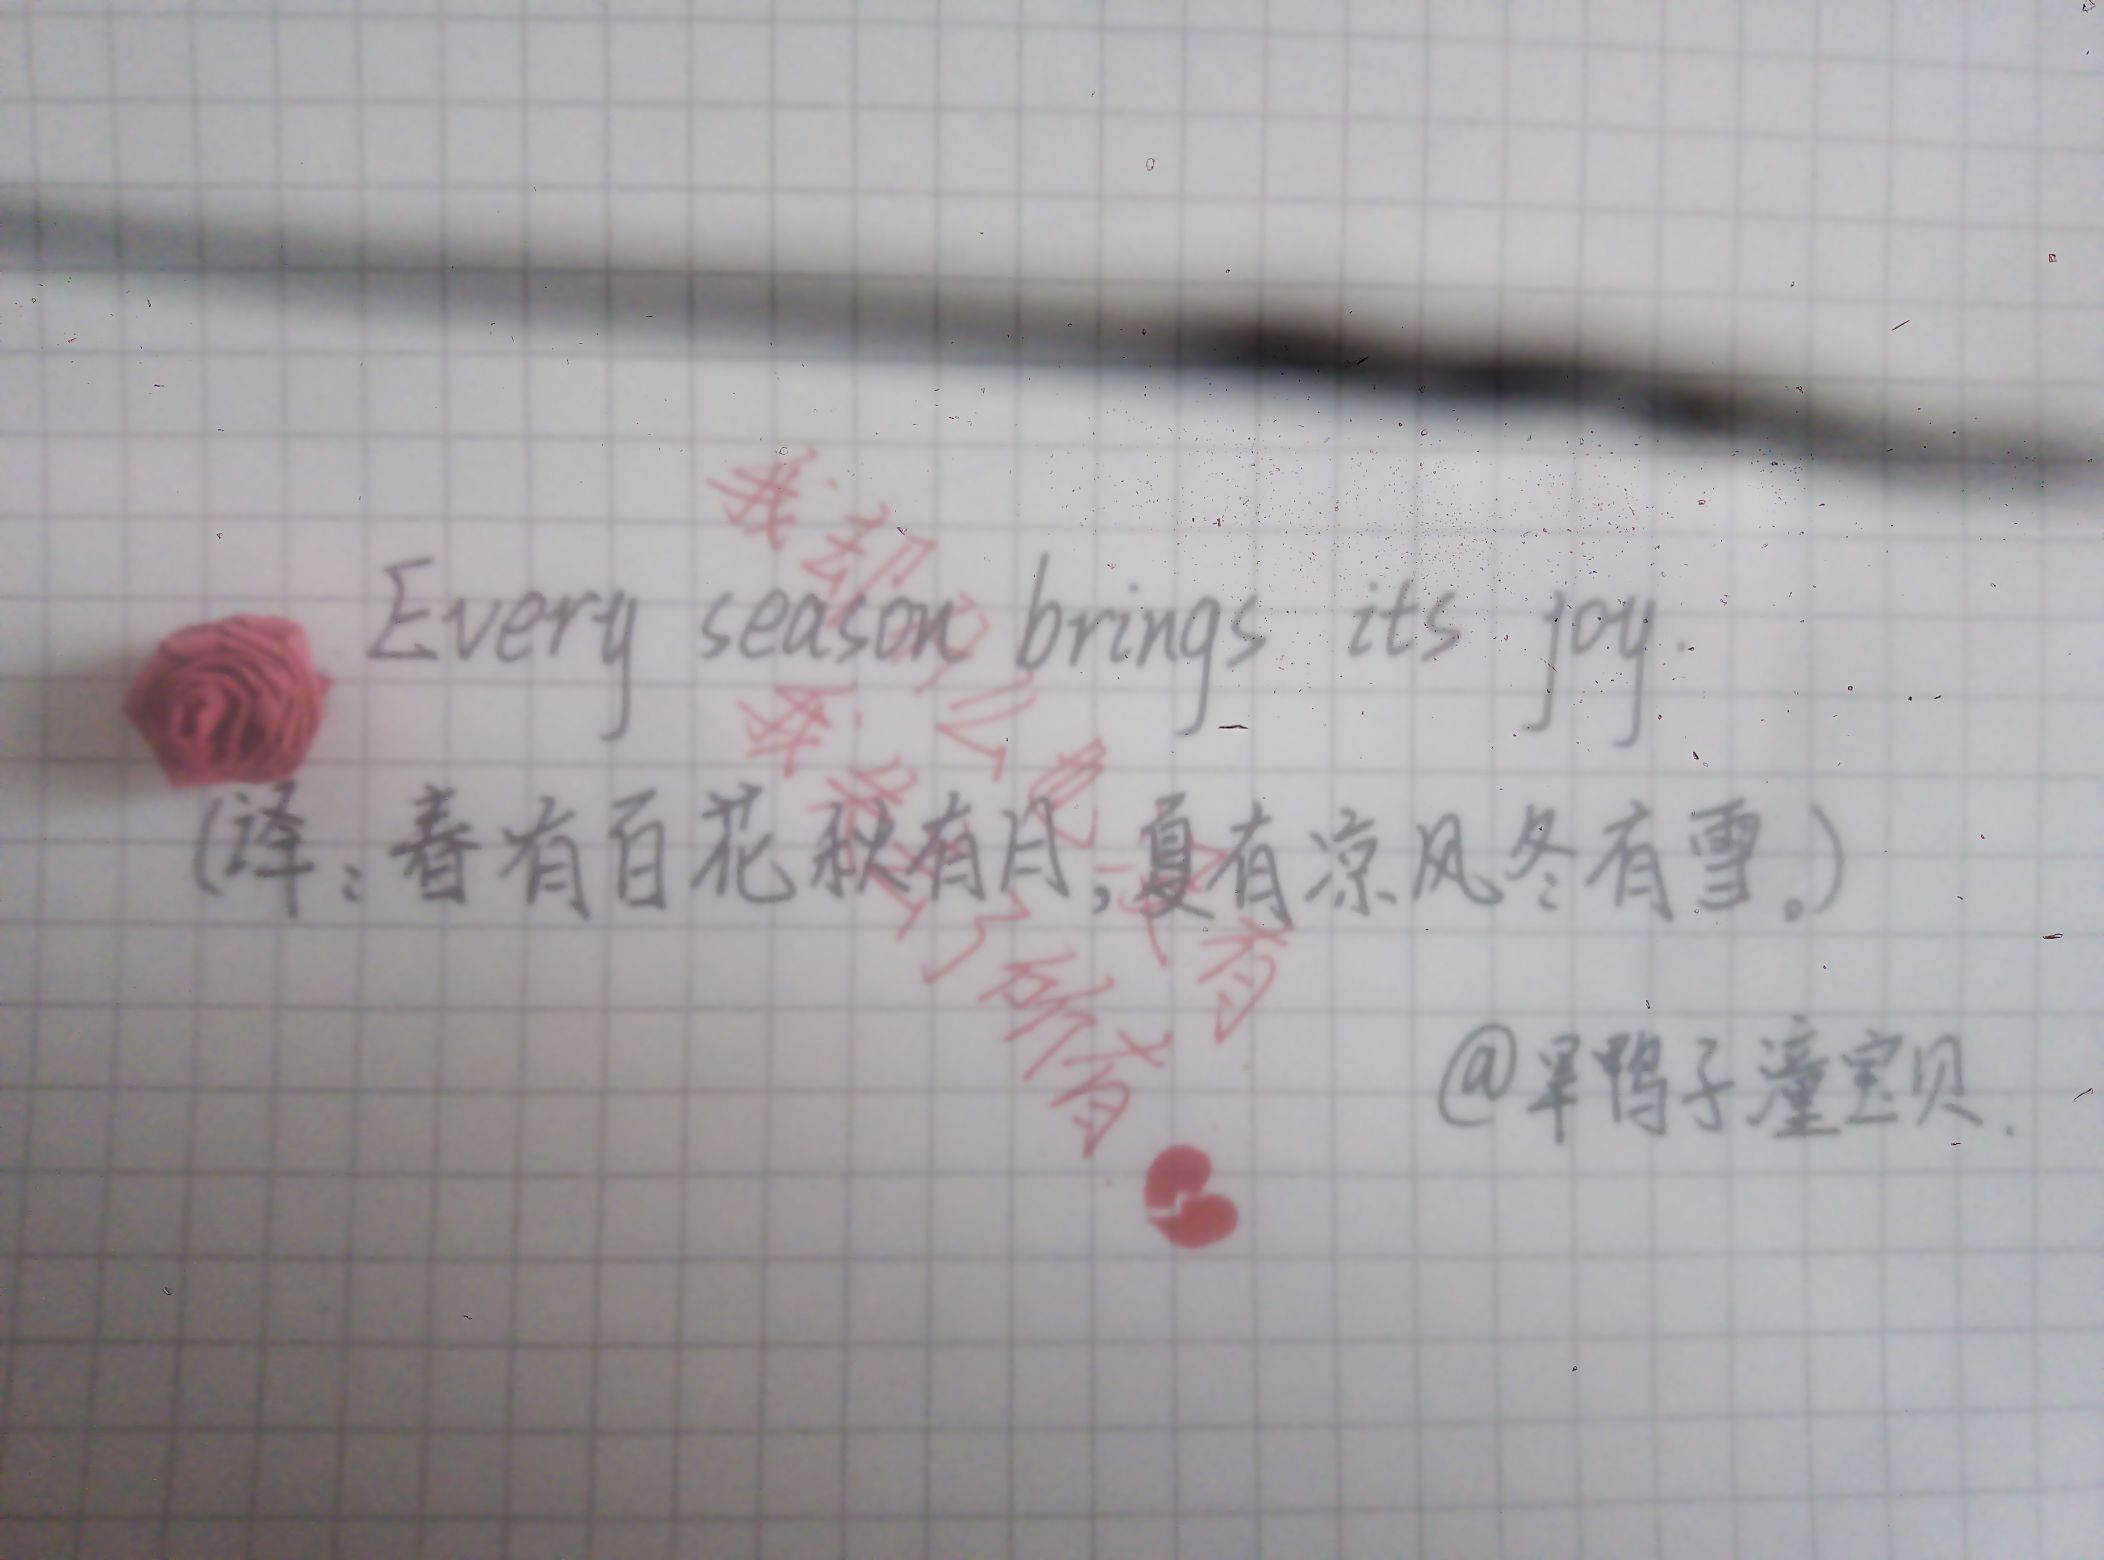 Every season brings its joy.
(译：春有百花秋有月,夏有凉风冬有雪。)
我却什么也没有
我失去了所有
@旱鸭子潼宝贝.